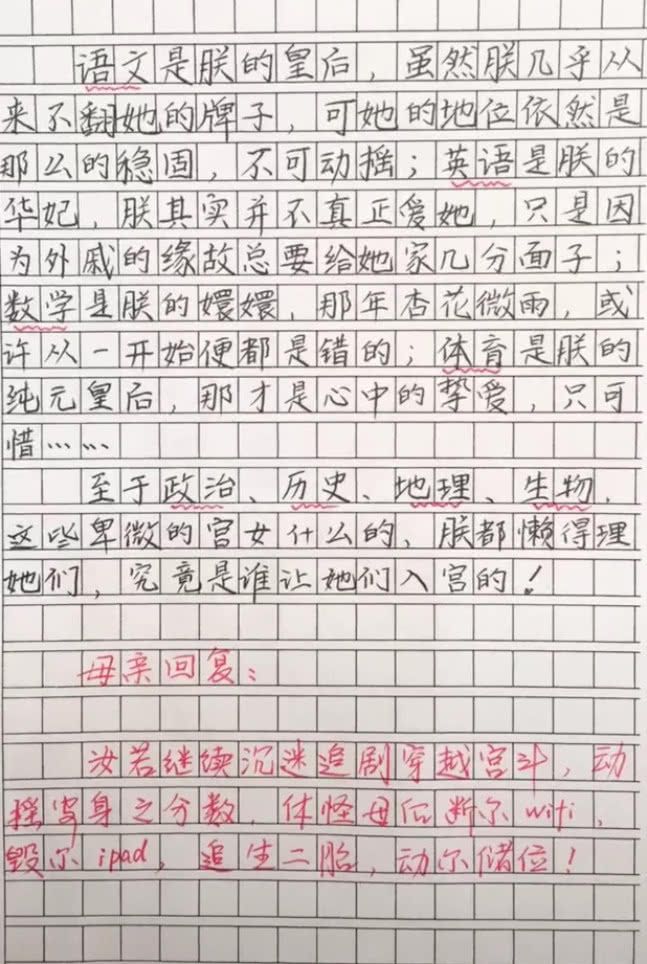 语文是朕的皇后，虽然朕几乎从
来不翻她的牌子，可她的地位依然是
那么的稳固，不可动摇；英语是朕的
华妃，朕其实并不真正爱她，只是因
为外戚的缘故总要给她家几分面子；
数学是朕的嬛嬛，那年杏花微雨，或
许从一开始便都是错的；体育是朕的
纯元皇后，那才是心中的挚爱，只可
惜……
至于政治、历史、地理、生物，
这些卑微的宫女什么的，朕都懒得理
她们，究竟是谁让她们入宫的！
母亲回复：
汝若继续沉迷追剧穿越宫斗，动
摇安身之分数，休怪母后断尔wifi，
毁尔ipad，追生二胎，动尔储位！